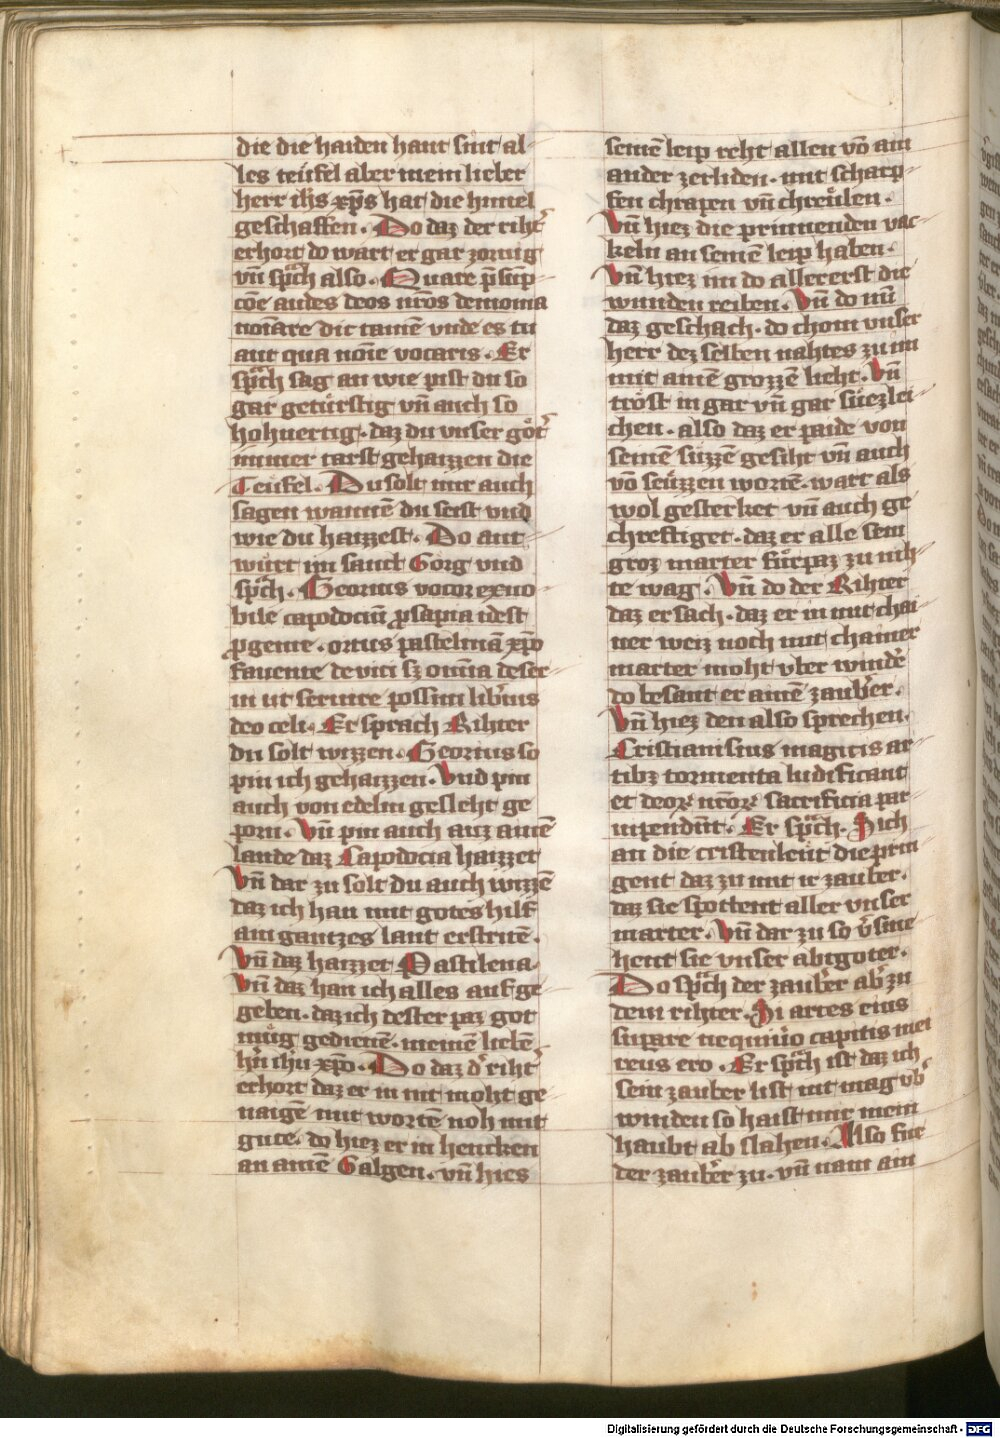 die die haiden hant sint al-
les teüfel aber mein lieber
herr ih̄s xp̄s hat die himel
geschaffen. Do daz der riht̉
erhort do wart er gar zornig
vn̄ sp̾ch also. Quare p̄sūp
cōe audes deos nr̄os demonia
notare
aut qua noīe vocaris. Er
sp̾ch sag an wie pist du so
gar getürstig vn̄ auch so
hohuertig. daz du vnser göt̉
immer tarst gehaizzen die
Teufel. Du solt mir auch
sagen wannē du seist vnd
wie du haizzest. Do ant
würt im sanct Görg vnd
sp̾ch. Georius vocor ex no
bile capodociū ꝓsapia idest
ꝓgenie. ortus pastelinā xp̄o
fauente deuici sꝫ omnia deser
ui ut seruire possim lib̾ius
deo celi. Er sprach Rihter
du solt wizzen. Georius so
pin ich gehaizzen. Vnd pin
auch von edelm gesleht ge
porn. Vn̄ pin auch auz ainē
lande daz Capodocia haizzet
Vn̄ dar zu solt du auch wizzē
daz ich han mit gotes hilf
ain gantzes lant erstritē.
Vn̄ daz haizzet Pastilena.
Vn̄ daz han ich alles auf ge
geben. daz ich dester paz got
müg gedienē. meinē liebē
hr̄n ih̄u xp̄o. Do daz d̾ riht̉
erhort daz er in nit moht ge
naigē mit wortē noh mit
gute. do hiez er in hencken
an ainē Galgen. vn̄ hies
seinē leip reht allen vō ain
ander zerliden. mit scharp-
fen chrapen vn̄ chreülen.
Vn̄ hiez die prinnenden vac
keln an seinē leip haben.
Vn̄ hiez im do allererst die
wunden reiben. Vn̄ do nū
daz geschach. do chom vnser
herr dez selben nahtes zu im
mit ainē grozzē lieht. Vn̄
tröst in gar vn̄ gar süezlei
chen. also daz er paide von
seinē süzzē gesiht vn̄ auch
vō seüzzen wortē. wart als
wol gesterket vn̄ auch ge
chreftiget. daz er alle sein
groz marter fürpaz zu nih-
te wag. Vn̄ do der Rihter
daz ersach. daz er in mit chai-
ner weiz noch mit chainer
marter moht vber windē
do besant er ainē zaub̾er.
Vn̄ hiez den also sprechen.
Cristiani suis magicis ar
tibꝫ tormenta ludificant
et deoꝝ nr̄oꝝ sacrificia par
uipendūt. Er sp̾ch. Sich
an die cristenleüt die prin
gent daz zu mit ir zauber.
daz sie spottent aller vnser
marter. Vn̄ dar zu so v̾sme
hent sie vnser abtgoter.
Do sp̾ch der zaub̾er ab̾ zu
dem rihter. Si artes eius
supare nequiu̾o capitis mei
reus ero. Er sp̾ch ist daz ich
sein zauber list nit mag vb̾
winden so haist mir mein
haubt ab slahen. Also fur
der zaub̾er zu. vn̄ nam ain
Digitalisierung gefördert durch die Deutsche Forschungsgemeinschaft - DFG